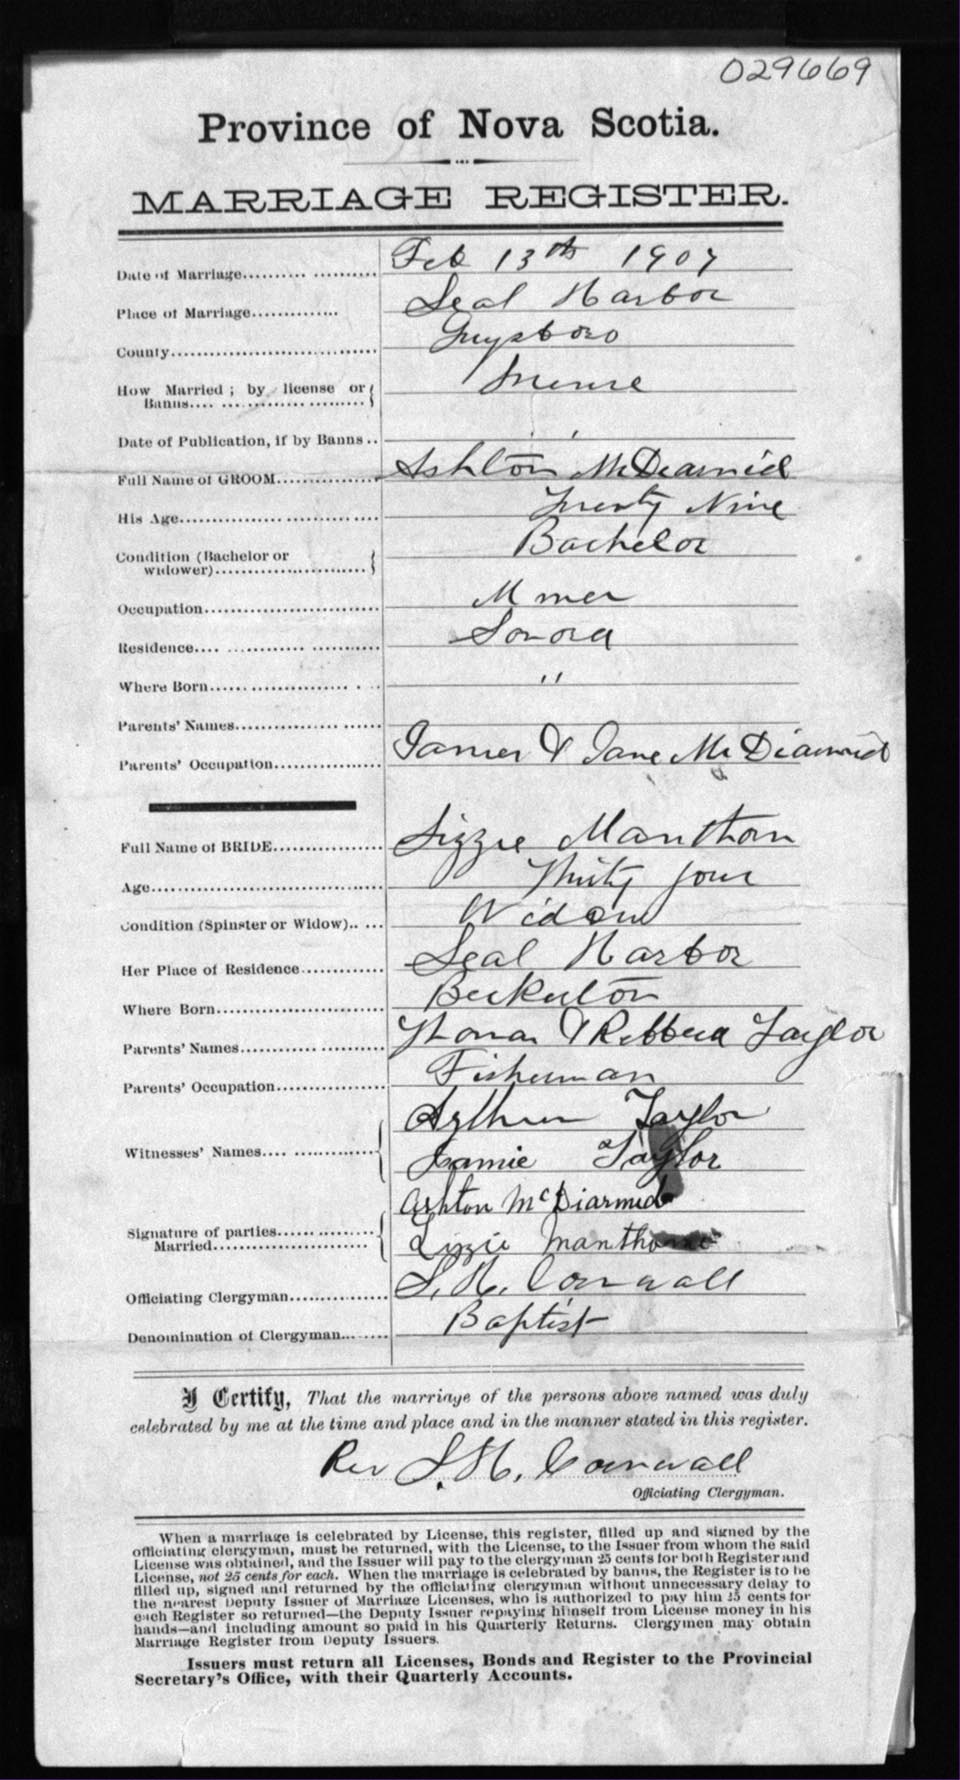 029669
Province of Nova Scotia.
MARRIAGE REGISTER.
Date of Marriage.......... Feb 13th 1907
Place of Marriage.............. Seal Harbor
County................................ Guysboro
How Married ; by license or
Banns.... License
Date of Publication, if by Banns ..
Full Name of GROOM................ Ashton McDiarmid
His Age................................ Twenty Nine
Condition (Bachelor or
widower)........................ Bachelor
Occupation............................ Miner
Residence.... Sonora
Where Born............................ "
Parents' Names........................
Parents' Occupation................ James & Jane McDiarmid
Full Name of BRIDE................ Lizzie Manthorn
Age.................................... Thirty four
Condition (Spinster or Widow)..... Widow
Her Place of Residence............. Seal Harbor
Where Born............................ Beckerton
Parents' Names........................ Thomas & Rebbeca Taylor
Parents' Occupation................ Fisherman
Arthur Taylor
Witnesses' Names.... Jamie Taylor
Ashton McDiarmid
Signature of parties
Married.......................... Lizzie Manthorne
Officiating Clergyman............... S. H. Cornwall
Denomination of Clergyman......... Baptist
I Certify, That the marriage of the persons above named was duly
celebrated by me at the time and place and in the manner stated in this register.
Rev S. H. Cornwall
Officiating Clergyman.
When a marriage is celebrated by License, this register, filled up and signed by the
officiating clergyman, must be returned, with the License, to the Issuer from whom the said
License was obtained, and the Issuer will pay to the clergyman 25 cents for both Register and
License, not 25 cents for each. When the marriage is celebrated by banns, the Register is to be
filled up, signed and returned by the officiating clergyman without unnecessary delay to
the nearest Deputy Issuer of Marriage Licenses, who is authorized to pay him 25 cents for
each Register so returned—the Deputy Issuer repaying himself from License money in his
hands—and including amount so paid in his Quarterly Returns. Clergymen may obtain
Marriage Register from Deputy Issuers.
Issuers must return all Licenses, Bonds and Register to the Provincial
Secretary's Office, with their Quarterly Accounts.